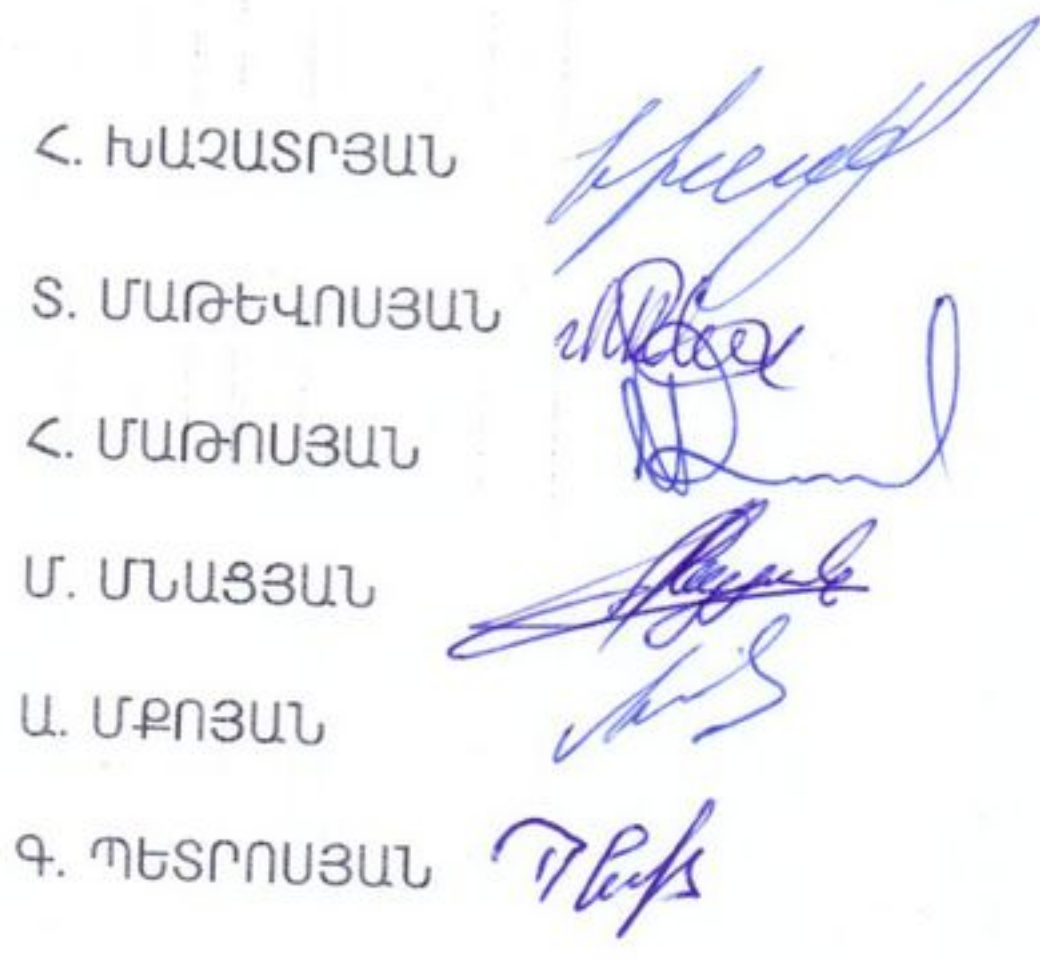 Հ. ԽԱՉԱՏՐՅԱՆ
Տ. ՄԱԹԵՎՈՍՅԱՆ
Հ. ՄԱԹՈՍՅԱՆ
Մ. ՄՆԱՑՅԱՆ
Ա. ՄՔՈՅԱՆ
Գ. ՊԵՏՐՈՍՅԱՆ